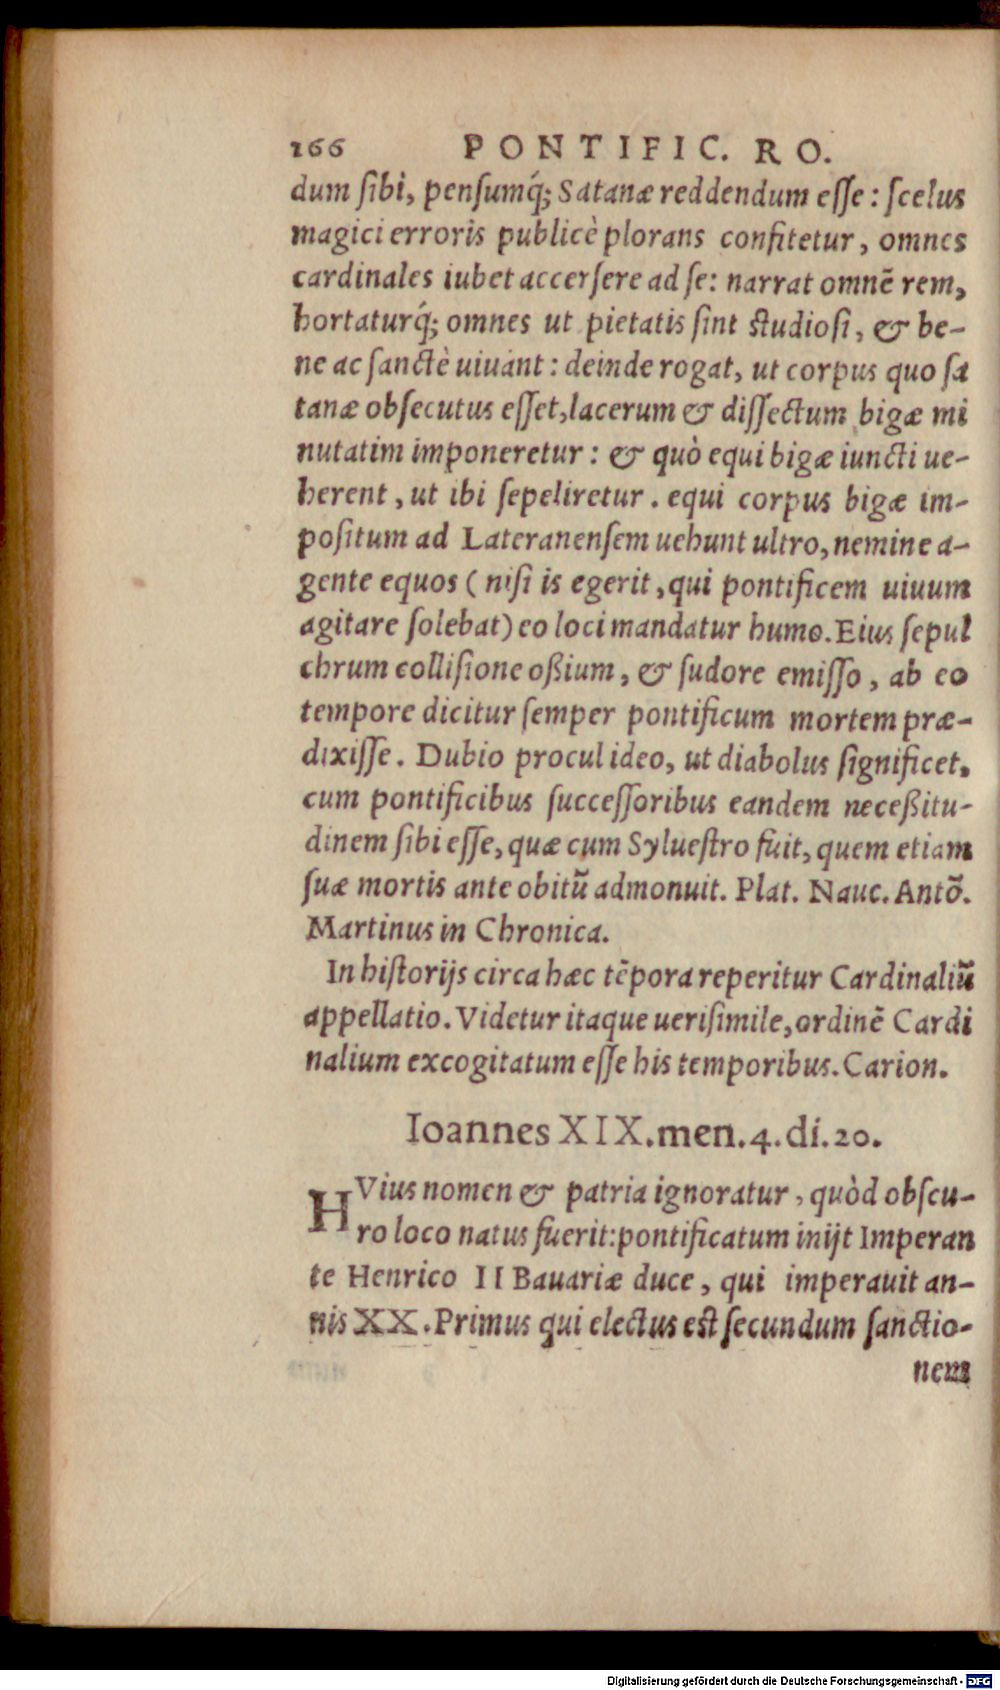 166 PONTIFIC. RO.
dum ſibi, penſumq́; Satanæ reddendum eſſe: ſcelus
magici erroris publicè plorans confitetur, omnes
cardinales iubet accerſere ad ſe: narrat omnē rem,
hortaturq́; omnes ut pietatis ſint ſtudioſi, & be-
ne ac ſanctè uiuant: deinde rogat, ut corpus quo ſa
tanæ obſecutus eſſet, lacerum & diſſectum bigæ mi
nutatim imponeretur: & quò equi bigæ iuncti ue-
herent, ut ibi ſepeliretur. equi corpus bigæ im-
poſitum ad Lateranenſem uehunt ultro, nemine a-
gente equos (niſi is egerit, qui pontificem uiuum
agitare ſolebat) eo loci mandatur humo. Eius ſepul
chrum colliſione oßium, & ſudore emiſſo, ab eo
tempore dicitur ſemper pontificum mortem præ-
dixiſſe. Dubio procul ideo, ut diabolus ſignificet,
cum pontificibus ſucceſſoribus eandem neceßitu-
dinem ſibi eſſe, quæ cum Sylueſtro fuit, quem etiam
ſuæ mortis ante obitū admonuit. Plat. Nauc. Antō.
Martinus in Chronica.
In hiſtorijs circa hæc tēpora reperitur Cardinaliū
appellatio. Videtur itaque ueriſimile, ordinē Cardi
nalium excogitatum eſſe his temporibus. Carion.
Ioannes XIX. men. 4. di. 20.
HVius nomen & patria ignoratur, quòd obſcu-
ro loco natus fuerit: pontificatum inijt Imperan
te Henrico II Bauariæ duce, qui imperauit an-
nis XX. Primus qui electus eſt ſecundum ſanctio-
nem
Digitalisierung gefördert durch die Deutsche Forschungsgemeinschaft - DFG